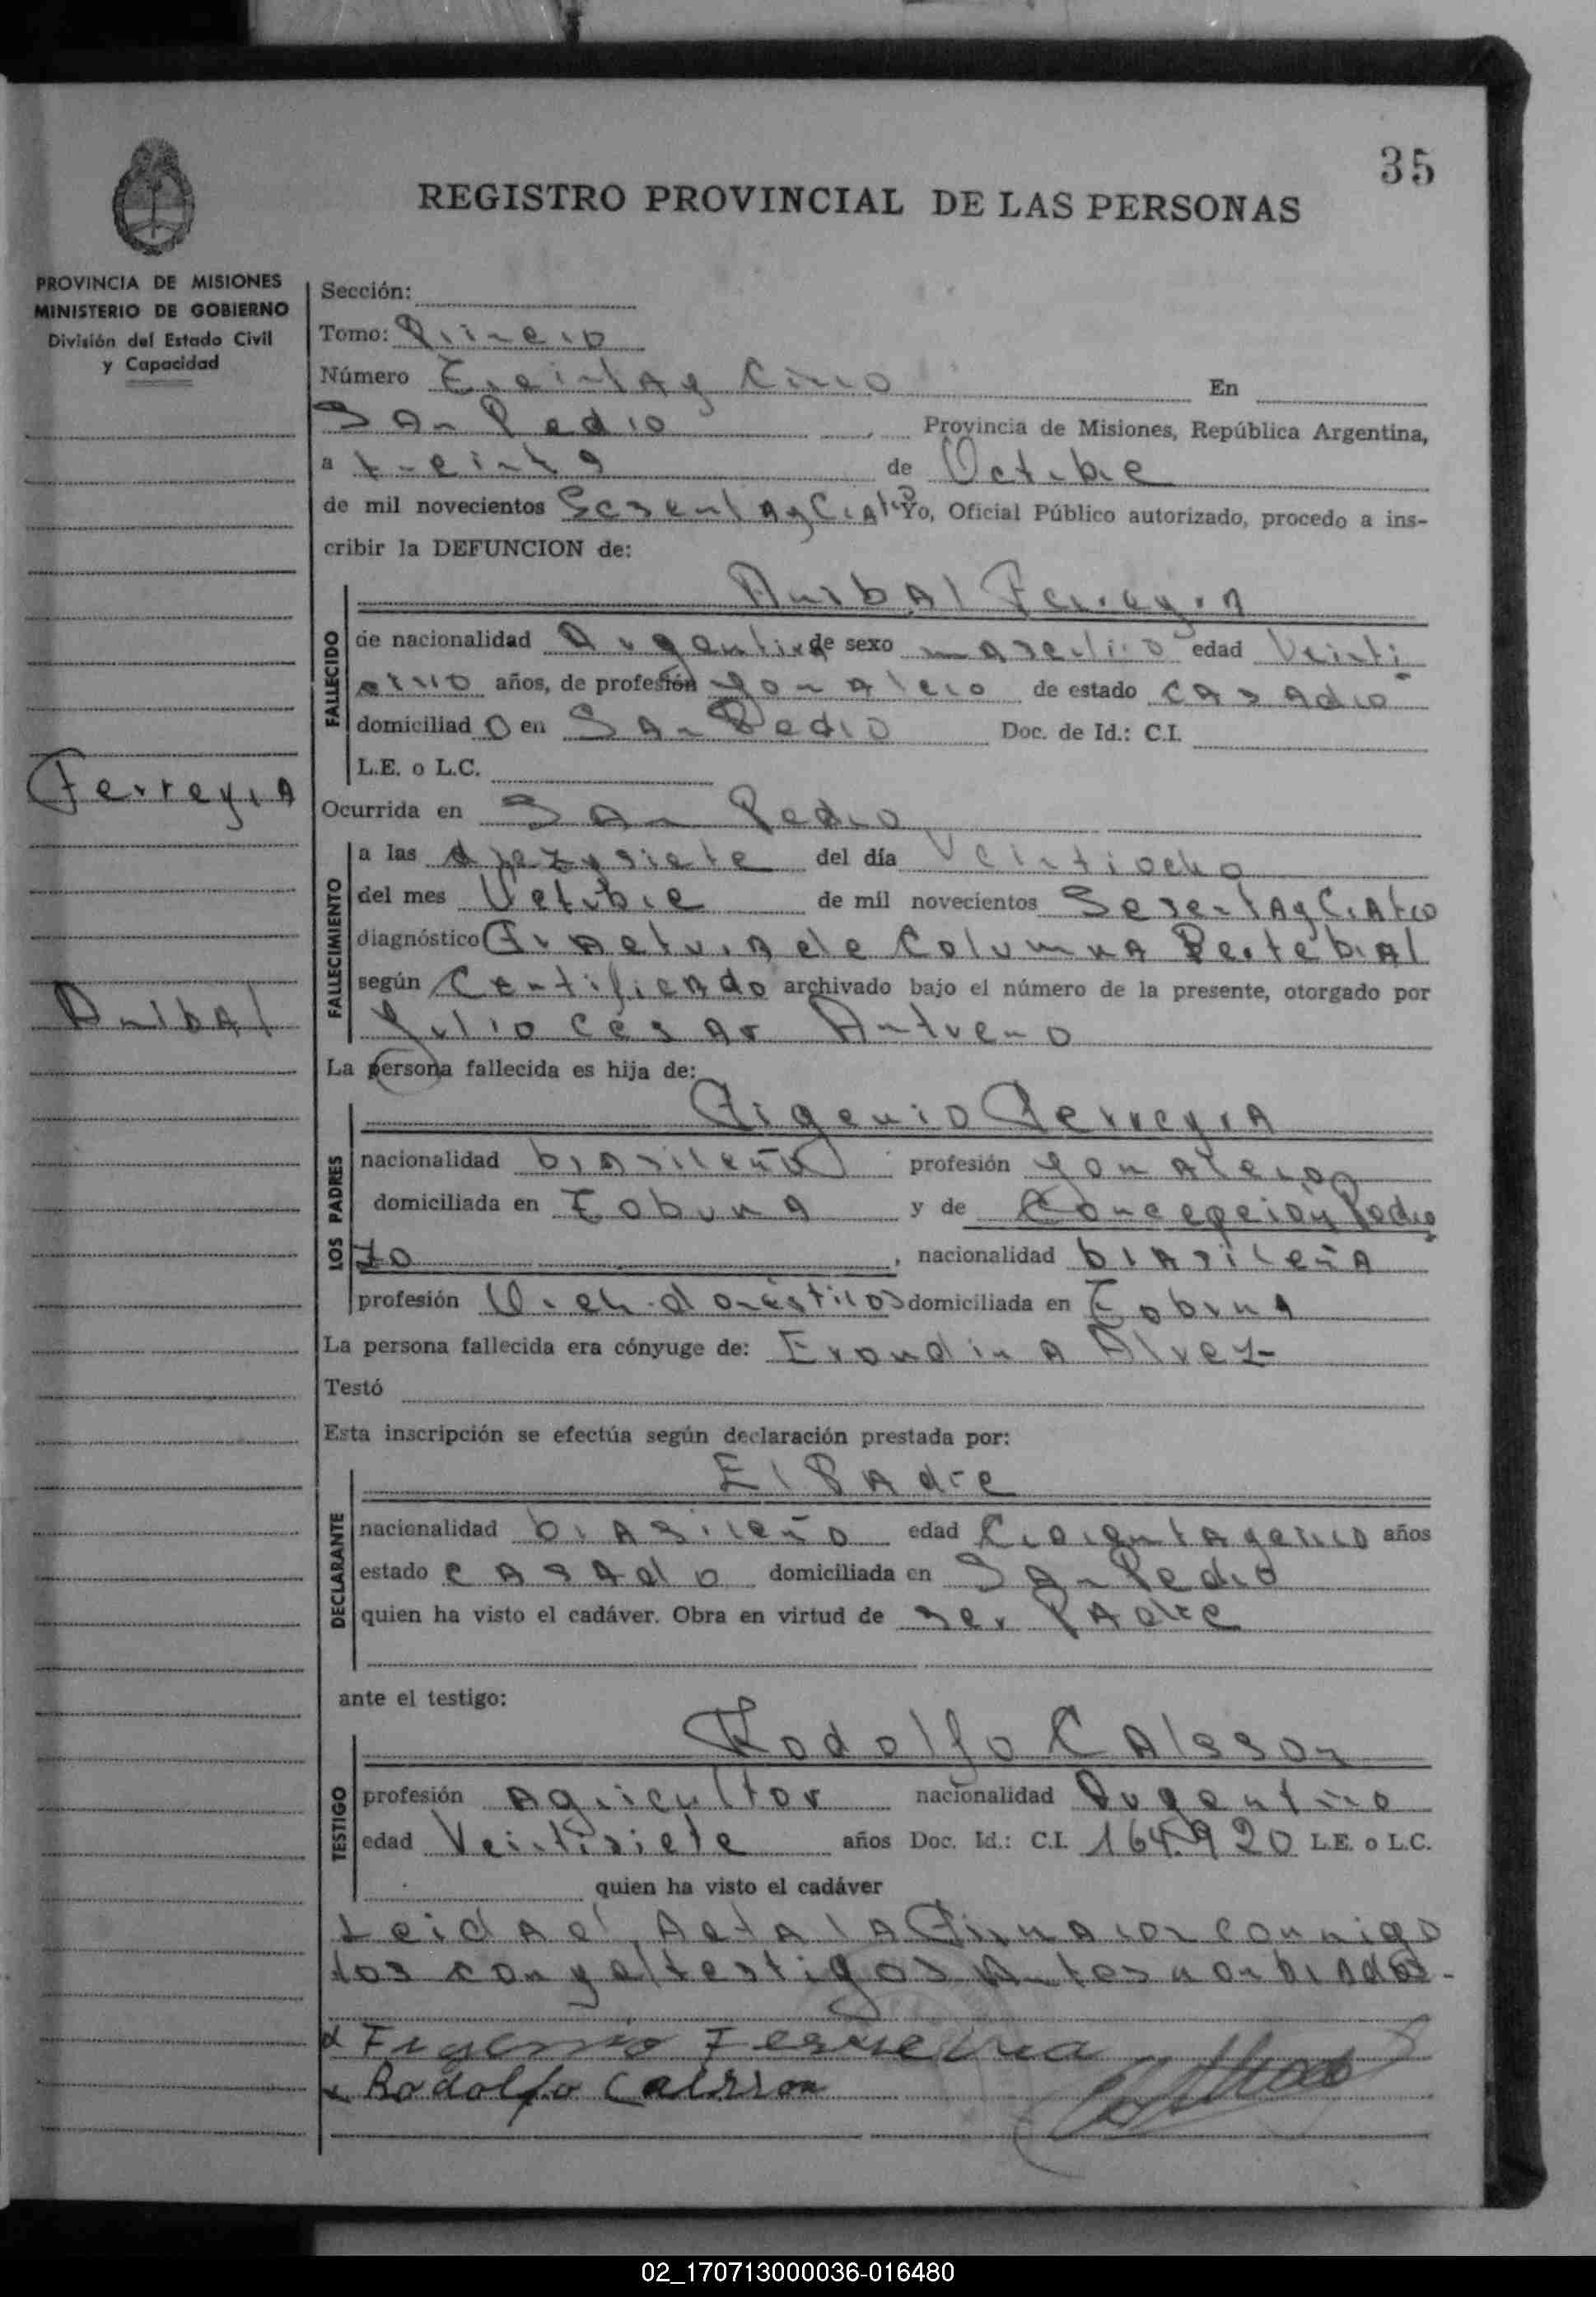 35
REGISTRO PROVINCIAL DE LAS PERSONAS
PROVINCIA DE MISIONES
MINISTERIO DE GOBIERNO
División del Estado Civil
y Capacidad
Ferreyra
Anibal
Sección:
Tomo: Primero
Número Treinta y Cinco En
San Pedro Provincia de Misiones, República Argentina,
a treinta de Octubre
de mil novecientos Sesenta y Cuatro Yo, Oficial Público autorizado, procedo a ins-
cribir la DEFUNCION de:
Anibal Ferreyra
FALLECIDO
de nacionalidad Argentina de sexo masculino edad Veinti
años, de profesión Jornalero de estado casado
domiciliad o en San Pedro Doc. de Id.: C.I.
L.E. o L.C.
Ocurrida en San Pedro
FALLECIMIENTO
a las diez y siete del día Veintiocho
del mes Octubre de mil novecientos Sesenta y Cuatro
diagnóstico Fractura de Columna Bertebral
según Certificado archivado bajo el número de la presente, otorgado por
Julio Cesar
La persona fallecida es hija de:
Figenio Ferreyra
LOS PADRES
nacionalidad brasileño profesión Jornalero
domiciliada en Tobuna y de Concepción Pedro
zo, nacionalidad brasileña
profesión domesticos domiciliada en Tobuna
La persona fallecida era cónyuge de: Erondina Alvez
Testó
Esta inscripción se efectúa según declaración prestada por:
El Padre
DECLARANTE
nacionalidad brasileño edad años
estado casado domiciliada en San Pedro
quien ha visto el cadáver. Obra en virtud de ser Padre
ante el testigo:
Rodolfo Calsson
TESTIGO
profesión Agricultor nacionalidad Argentino
edad Veintisiete años Doc. Id.: C.I. 164.920 L.E. o L.C.
quien ha visto el cadáver
Leida el Acta la Firma con conmigo
los con y el testigos Antes nonbrados.
Figenio Ferreira
Rodolfo Calsson
02_170713000036-016480